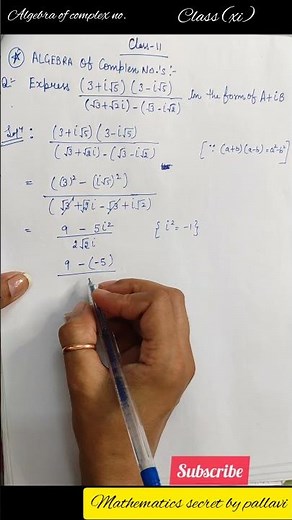 Algebra of complex no. Class(xi)
Class-11
* ALGEBRA Of Complex No.'s :-
Q:- Express (3+i√5) (3-i√5) / (√3+√2i) - (√3-i√2) in the form of A+iB
Solⁿ : (3+i√5) (3-i√5) / (√3+√2i) - (√3-i√2) [∵ (a+b)(a-b)=a²-b²]
= ((3)² - (i√5)²) / (√3+√2i - √3+i√2)
= 9 - 5i² / 2√2i { i² = -1}
9 - (-5)
Subscribe
Mathematics secret by pallavi